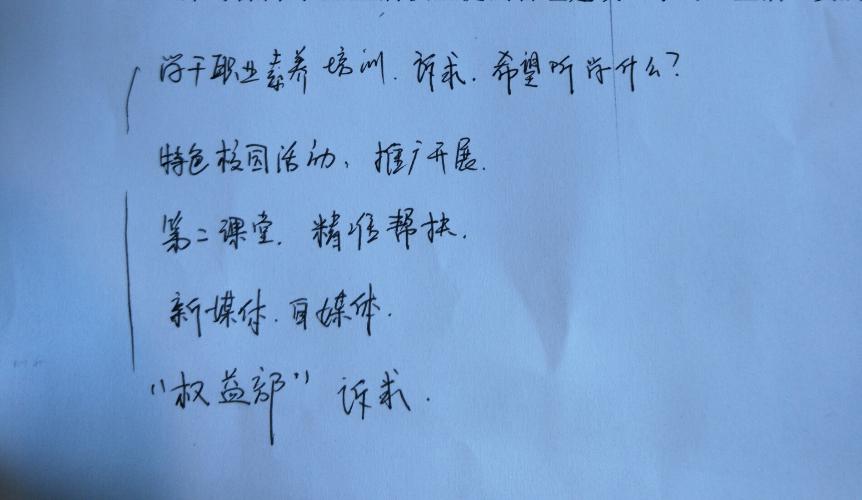 学干职业素养培训.诉求.希望听学什么?
特色校园活动,推广开展.
第二课堂.精准帮扶.
新媒体.自媒体.
"权益部"诉求.